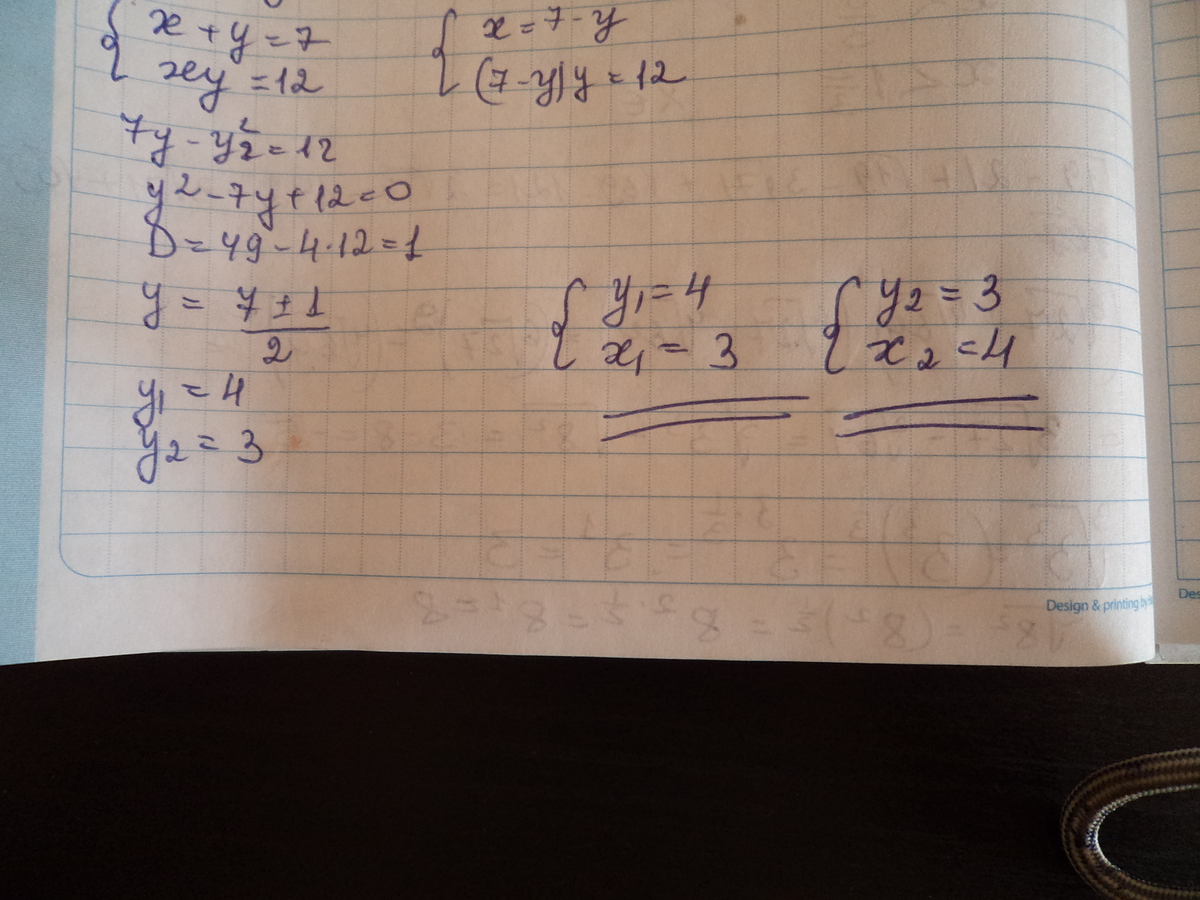 { x + y = 7
xy = 12
{ x = 7 - y
(7 - y) y = 12
7y - y² = 12
y² - 7y + 12 = 0
D = 49 - 4·12 = 1
y = 7 ± 1 / 2
y₁ = 4
y₂ = 3
{ y₁ = 4
x₁ = 3
{ y₂ = 3
x₂ = 4
Design & printing by